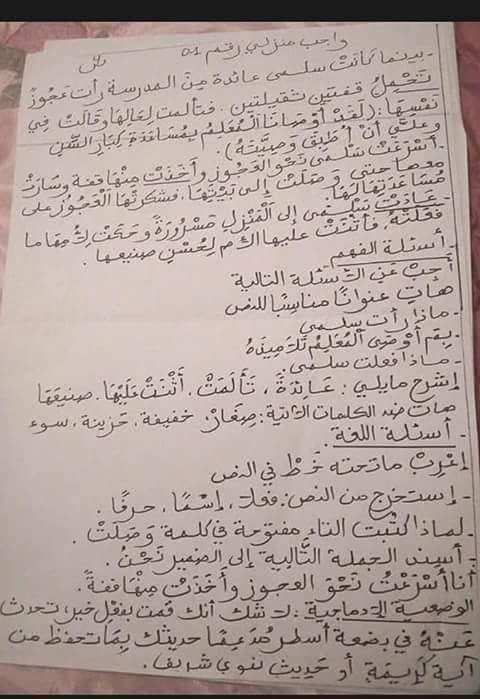 واجب منزلي رقم 01
نص
- بينما كَانَتْ سلمى عائدة مِنَ المدرسة رأت عَجُوزٌ
تَحْمِلُ قفتين ثقيلتين. فتألمت لِحَالِهَا وقَالَتْ فِي
نَفْسِهَا: (لَقَدْ أَوْصَانَا المُعَلِّمُ بِمُسَاعَدَةِ كِبَارِ السِّن
وعلَيَّ أَنْ أُطَبِّقَ وَصِيَّتَهُ).
- أَسْرَعَتْ سَلْمى نَحْوَ العَجُوزِ وأَخَذَتْ مِنْهَا قفة وسَارَتْ
معها حتى وَصَلَتْ إلى بَيْتِهَا، فشكرتها العَجُوزُ على
مُسَاعَدَتِهَا لَهَا.
- عَادَتْ سَلْمى إلى المَنْزِلِ مَسْرُورَةً وحَكَتْ لِأُمِّهَا ما
فعلَتْهُ، فأَثْنَتْ عليها الأم لِحُسْنِ صنيعها.
- أسئلة الفهم
أَجِبْ عَنِ الأَسْئلة التالية
هاتِ عنوانًا مناسِبًا للنص
- ماذا رأت سلمى
- بِمَ أَوْصَى المُعَلِّمُ تَلَامِيذَهُ
- ماذا فعلت سلمى
إشرح مايلي: عَائِدَةً، تَأَلَمَتْ، أَثْنَتْ عَلَيْهَا، صنيعَهَا
هات ضد الكلمات الآتية: صِغَارْ، خفيفة، حَزِينة، سوء
- أسئلة اللغة.
إعْرِبْ ماتحته خَطْ في النص
- إستخرج من النص: فعلا، إسْمًا، حرفًا.
- لماذا كُتِبَت التاء مفتوحة في كلمة وَصَلَتْ.
- أسند الجملة التَّالِيةَ إلى الضمير نَحْنُ.
أنا أَسْرَعْتُ نَحْوَ العجوز وأَخَذتُ مِنْهَا قفةً.
الوضعية الإدماجية: لا شك أنك قمت بفعل خير، تحدث
عَنْهُ في بضعة أسطر مُدَعِمًا حديثك بِمَا تحفظ من
آية كَرِيمَةٍ أو حَدِيث نبوي شريف.